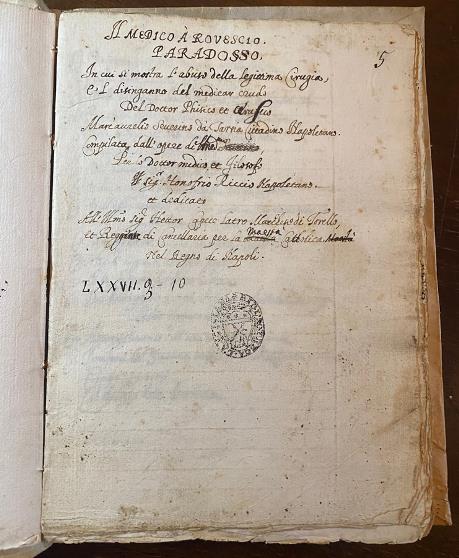 IL MEDICO À ROVESCIO.
PARADOSSO.
5
In cui si mostra l'abuso della legitima Cirugia,
e'l disinganno del medicar caudo
Del Dottor Phisico et Cirusico
Marc'aurelio Severino da Tarsia Cittadino Napoletano.
Compilata dall'opere di
Per lo Dottor medico, et filosofo
Il sig.r Honofrio Riccio Napoletano.
et dedicato
All' Illmo sig. Hettor Capece latro Marchese di Torello,
et Reggente di Cancellaria per la Maestà Catholica
Nel Regno di Napoli.
LXXVII. 9 - 10
3